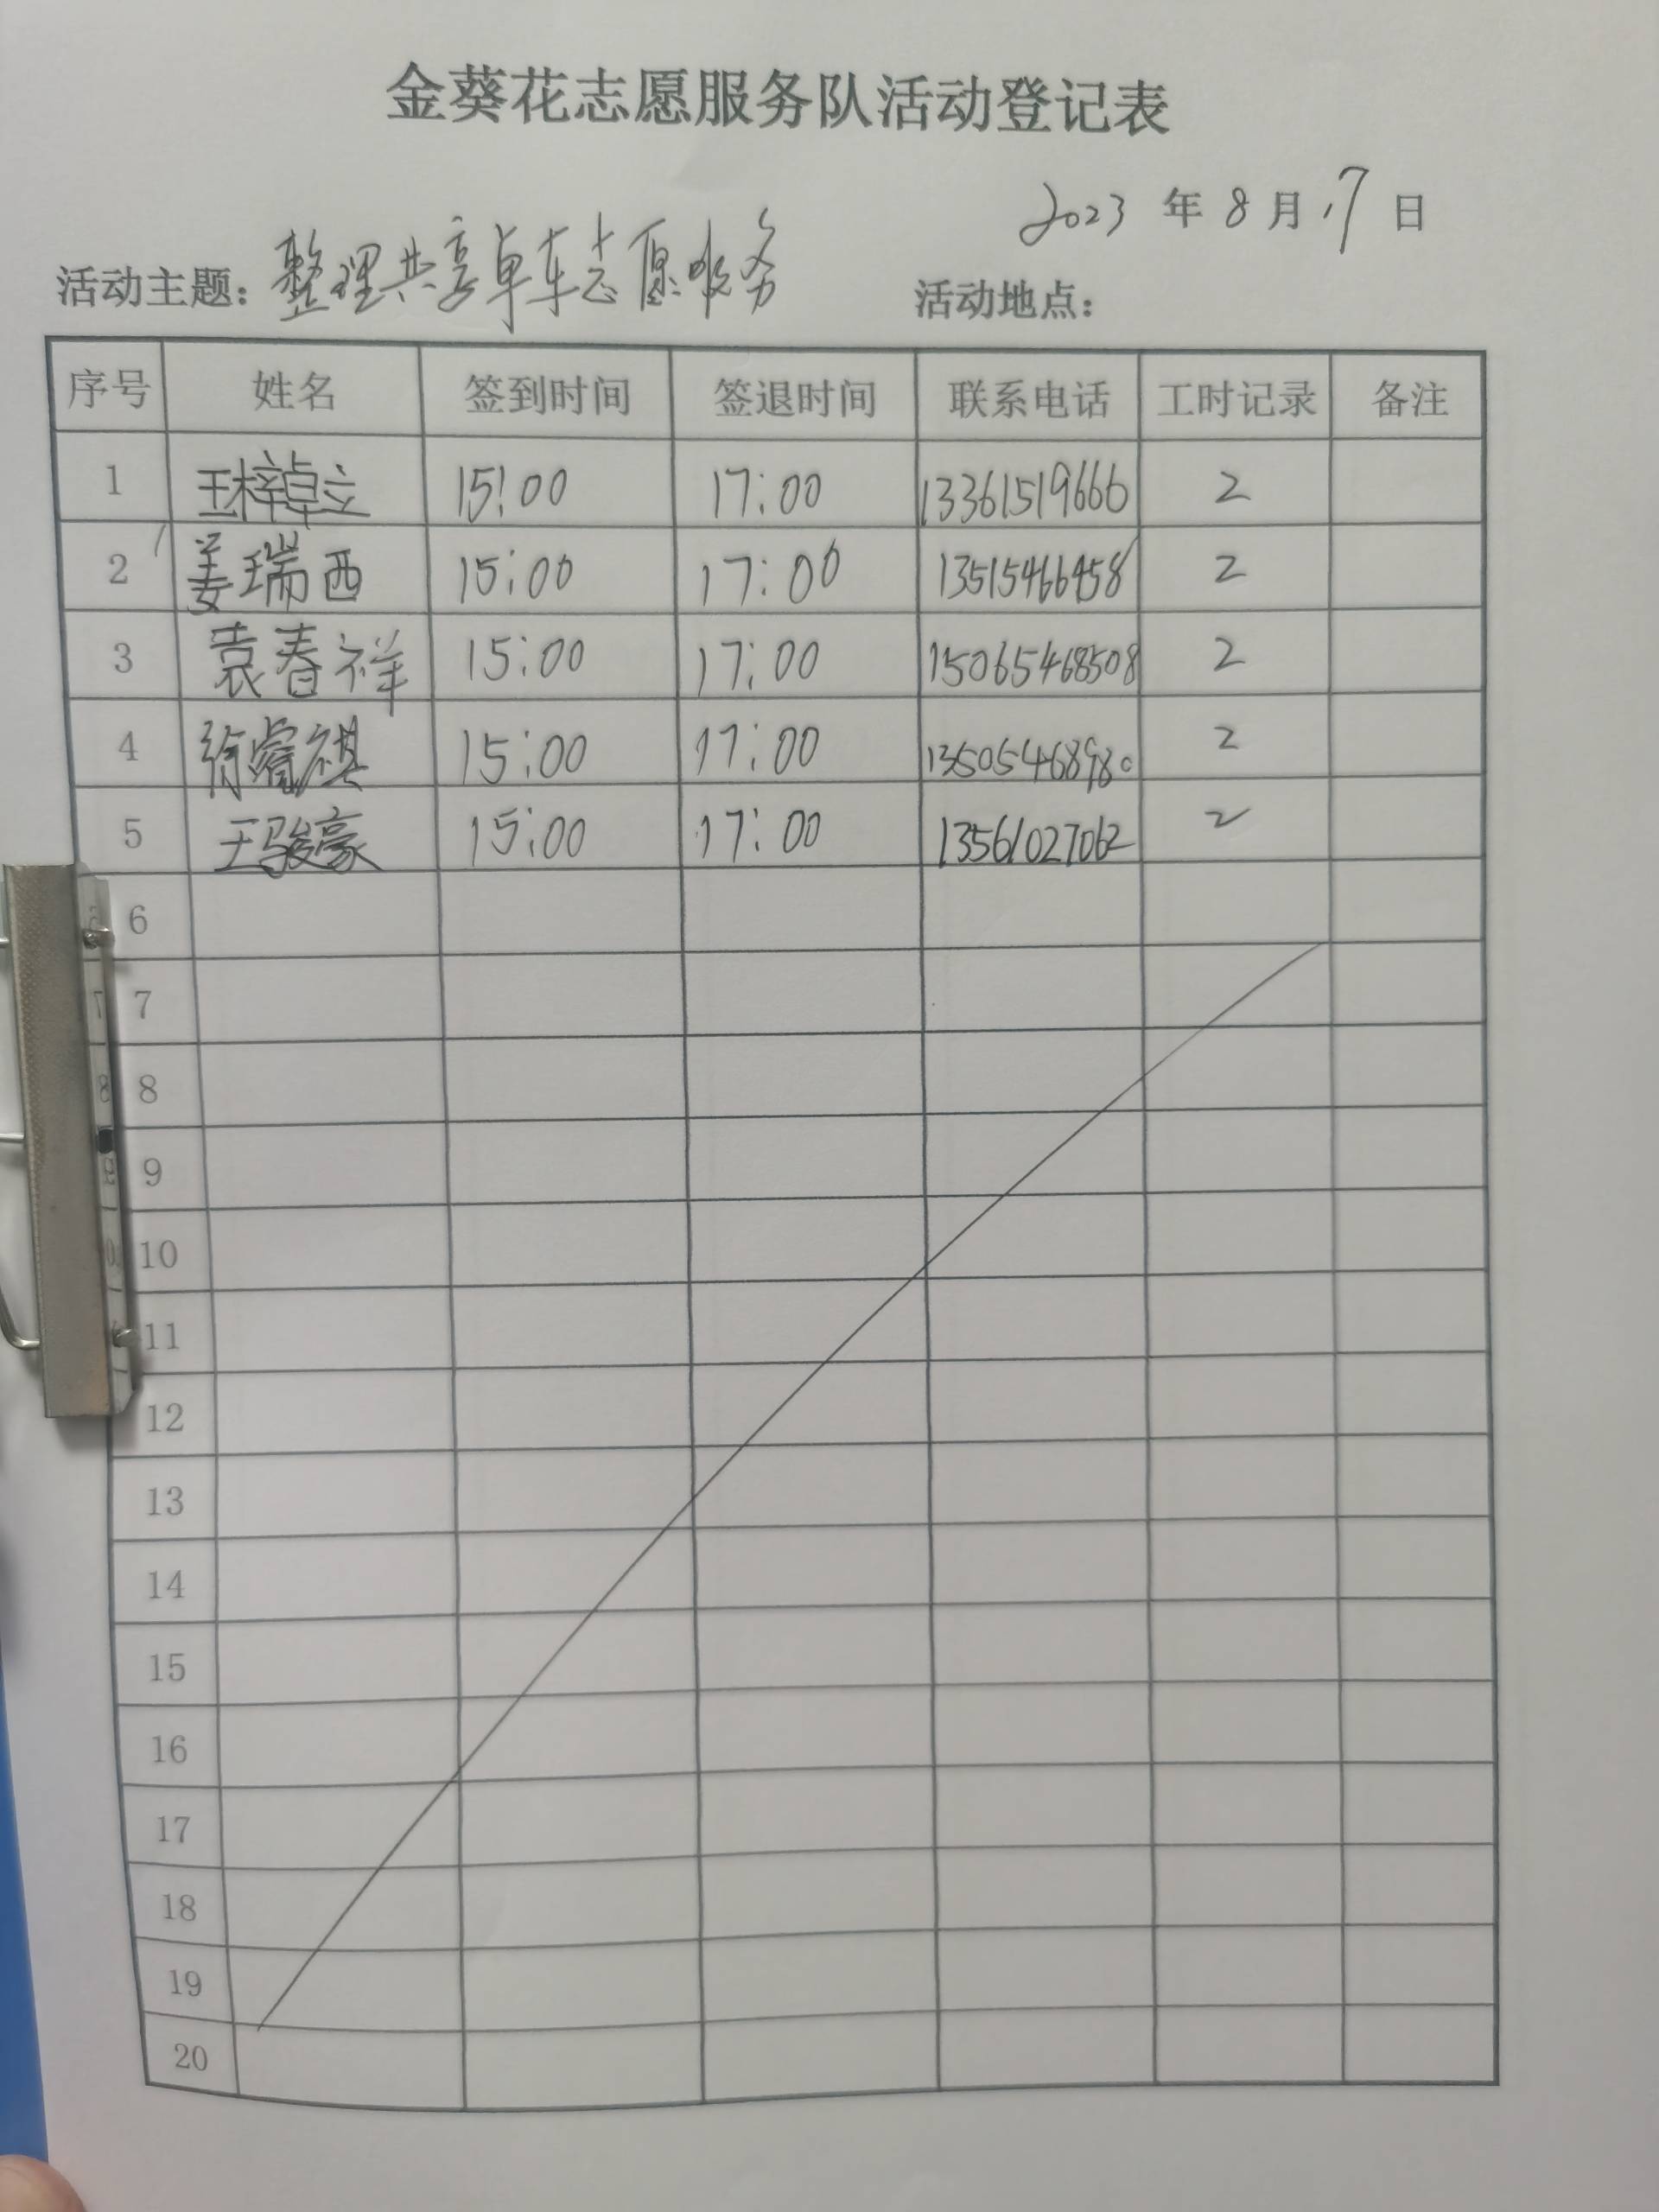 金葵花志愿服务队活动登记表
2023 年 8 月 17 日
活动主题：整理共享单车志愿服务 活动地点：
序号 姓名 签到时间 签退时间 联系电话 工时记录 备注
1 王梓卓立 15:00 17:00 13361519666 2
2 姜瑞西 15:00 17:00 13515466458 2
3 袁春祥 15:00 17:00 15065468508 2
4 徐睿祺 15:00 17:00 13505468980 2
5 王骏豪 15:00 17:00 13561027062 2
6
7
8
9
10
11
12
13
14
15
16
17
18
19
20